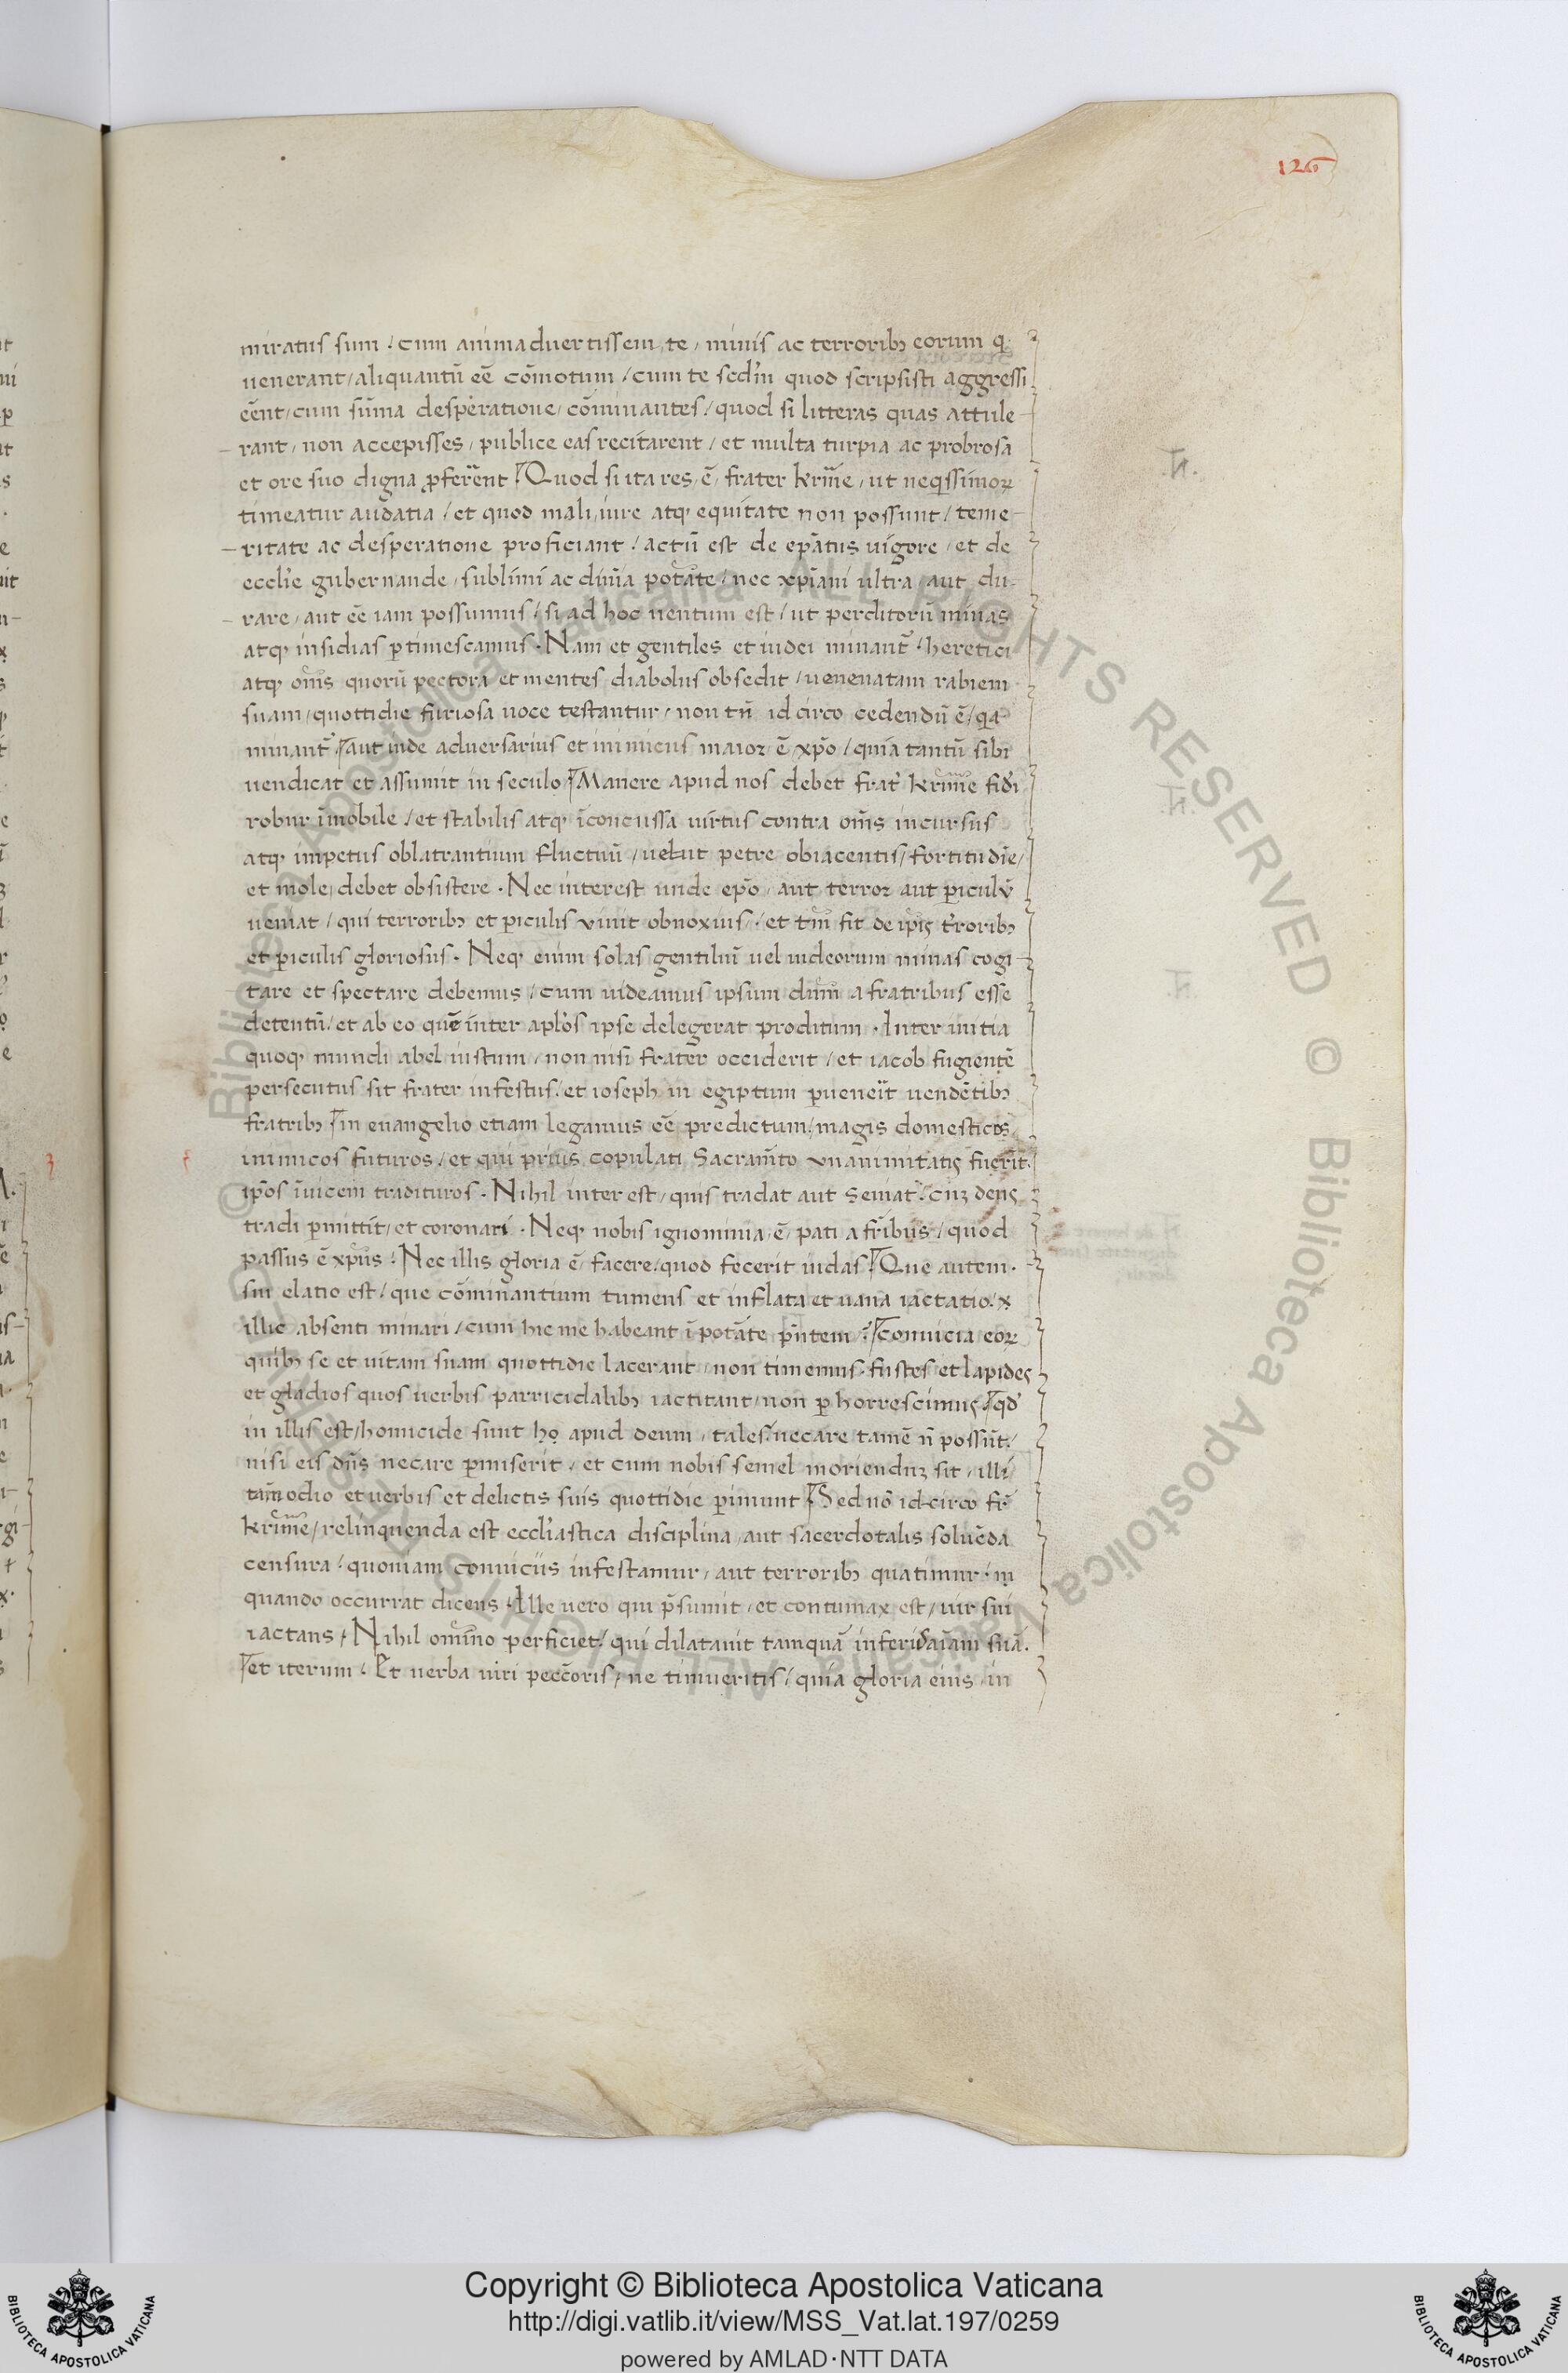 126
miratus sum / cum animadvertissem te / minis ac terroribꝫ eorum q̇
uenerant / aliquantū eē cōmotum / cum te scd̄m quod scripsisti aggressi
eēnt / cum sūma desperatione / cōminantes / quod si litteras quas attule-
rant / non accepisses / publice eas recitarent / et multa turpia ac probrosa
et ore suo digna ꝓferrent / Quod si ita res ē / frater krm̄e / ut neq̇ssimoꝝ
timeatur audatia / et quod mali iure atqꝫ equitate non possunt / teme-
ritate ac desperatione proficiant / actū est de ep̄atus uigore / et de
eccl̄ie gubernande / sublimi ac diūia potāte / nec xp̄iani ultra / aut du-
rare / aut eē iam possumus / si ad hoc uentum est / ut perditorū minas
atqꝫ insidias ꝑtimescamus · Nam et gentiles et iudei minant̄ / heretici
atqꝫ om̄s quorū pectora et mentes diabolus obsedit / uenenatam rabiem
suam / quottidie furiosa uoce testantur / non tn̄ idcirco cedendū ē / qa
minant̄ / aut inde adversarius et inimicus maior ē xp̄o / quia tantū sibi
uendicat et assumit in seculo / Manere apud nos debet frat̄ krm̄e fid̄i
robur īmobile / et stabilis atqꝫ īconcussa uirtus contra om̄s incursus
atqꝫ impetus oblatrantium fluctuū / uelut petre obiacentis / fortitudīe /
et mole / debet obsistere · Nec interest unde ep̄o / aut terror aut ꝑiculū
ueniat / qui terroribꝫ et ꝑiculis viuit obnoxius / et tm̄ fit de ip̄is t̄roribꝫ
et ꝑiculis gloriosus · Neqꝫ enim solas gentiliū uel iudeorum minas cogi-
tare et spectare debemus / cum uideamus ipsum dn̄m a fratribus esse
detentū / et ab eo quē inter apl̄os ipse delegerat proditum · Inter initia
quoqꝫ mundi abel iustum / non nisi frater occiderit / et iacob fugientē
persecutus sit frater infestus / et ioseph in egiptum ꝑuenerit uendētibꝫ
fratribꝫ / in euangelio etiam legamus eē predictum / magis domesticos
inimicos futuros / et qui prius copulati Sacram̄to vnanimitatis fuerīt
ip̄os īuicem tradituros · Nihil interest / quis tradat aut seuiat / cuꝫ deus
tradi ꝑmittit / et coronari · Neqꝫ nobis ignominia ē / pati a fr̄ibus / quod
passus ē xp̄us / Nec illis gloria ē / facere / quod fecerit iudas / Que autem
sui elatio est / que cōminantium tumens et inflata et uana iactatio /
illic absenti minari / cum hic me habeant ī potāte p̄ntem / Conuicia eoꝝ
quibꝫ se et uitam suam quottidie lacerant / non timemus · fustes et lapides
et gladios quos uerbis parricidalibꝫ iactitant / non ꝑhorrescimus / qd̄
in illis est / homicide sunt apud deum / tales / necare tamē n̄ possūt /
nisi eis dn̄s necare ꝑmiserit / et cum nobis semel moriendꝫ sit / illi
tam̄ odio et uerbis et delictis suis quottidie ꝑimunt / Sed nō idcirco fr̄
krm̄e / relinquenda est eccl̄iastica disciplina / aut sacerdotalis soluēda
censura / quoniam conuiciis infestamur / aut terroribꝫ quatimur /
quando occurrat dicens / Ille uero qui p̄sumit / et contumax est / uir sui
iactans / Nihil omīno perficiet / qui dilatauit tamquā inferi aīam suā
et iterum / Et uerba uiri pecc̄oris / ne timueritis / quia gloria eius / in
Copyright © Biblioteca Apostolica Vaticana
http://digi.vatlib.it/view/MSS_Vat.lat.197/0259
powered by AMLAD·NTT DATA
BIBLIOTECA APOSTOLICA VATICANA
BIBLIOTECA APOSTOLICA VATICANA
© Biblioteca Apostolica Vaticana ALL RIGHTS RESERVED © Biblioteca Apostolica Vaticana ALL RIGHTS RESERVED